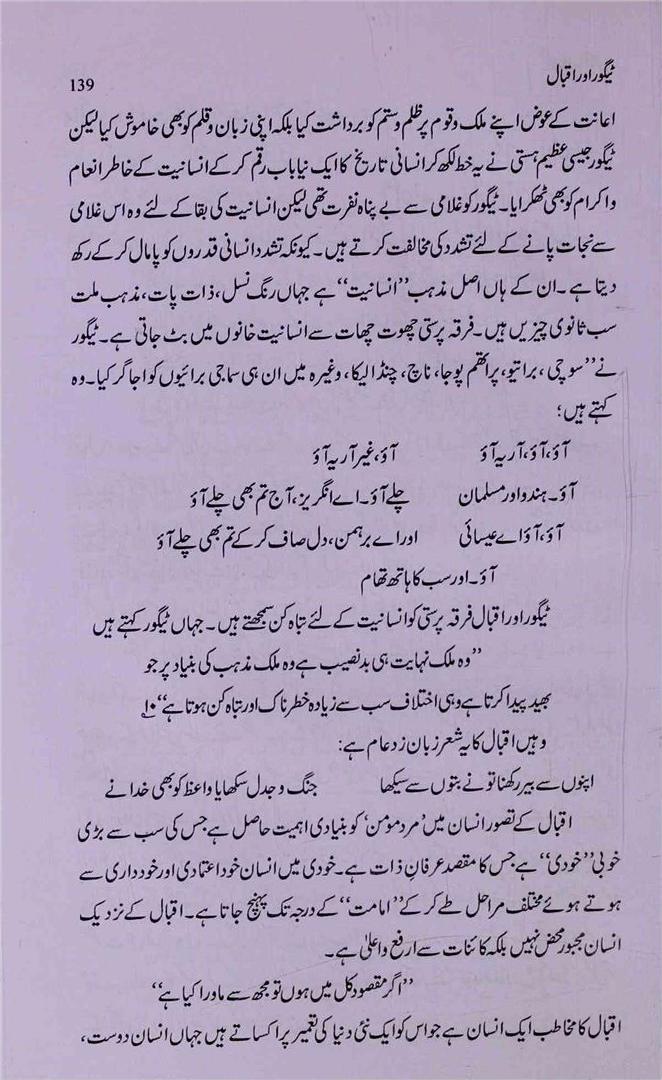 ٹیگور اور اقبال 139
اعانت کے عوض اپنے ملک و قوم پر ظلم و ستم کو برداشت کیا بلکہ اپنی زبان و قلم کو بھی خاموش کیا لیکن
ٹیگور جیسی عظیم ہستی نے یہ خط لکھ کر انسانی تاریخ کا ایک نیا باب رقم کر کے انسانیت کے خاطر انعام
و اکرام کو بھی ٹھکرایا۔ ٹیگور کو غلامی سے بے پناہ نفرت تھی لیکن انسانیت کی بقا کے لئے وہ اس غلامی
سے نجات پانے کے لئے تشدد کی مخالفت کرتے ہیں۔ کیونکہ تشدد انسانی قدروں کو پامال کر کے رکھ
دیتا ہے۔ ان کے ہاں اصل مذہب ’’انسانیت‘‘ ہے جہاں رنگ نسل، ذات پات، مذہب ملت
سب ثانوی چیزیں ہیں۔ فرقہ پرستی چھوت چھات سے انسانیت خانوں میں بٹ جاتی ہے۔ ٹیگور
نے ’’سوچی، براتیو، پراتھم پوجا، ناچ، چنڈالیکا، وغیرہ میں ان ہی سماجی برائیوں کو اجاگر کیا۔ وہ
کہتے ہیں؛
آؤ، آؤ، آریہ آؤ آؤ، غیر آریہ آؤ
آؤ۔ ہندو اور مسلمان چلے آؤ۔ اے انگریز، آج تم بھی چلے آؤ
آؤ، آؤ اے عیسائی اور اے برہمن، دل صاف کر کے تم بھی چلے آؤ
آؤ۔ اور سب کا ہاتھ تھام
ٹیگور اور اقبال فرقہ پرستی کو انسانیت کے لئے تباہ کن سمجھتے ہیں۔ جہاں ٹیگور کہتے ہیں
’’وہ ملک نہایت ہی بدنصیب ہے وہ ملک مذہب کی بنیاد پر جو
بھید پیدا کرتا ہے وہی اختلاف سب سے زیادہ خطرناک اور تباہ کن ہوتا ہے‘‘ ۱۰
وہیں اقبال کا یہ شعر زبان زد عام ہے:
اپنوں سے بیر رکھنا تو نے بتوں سے سیکھا جنگ و جدل سکھایا واعظ کو بھی خدا نے
اقبال کے تصور انسان میں ’مردِ مومن‘ کو بنیادی اہمیت حاصل ہے جس کی سب سے بڑی
خوبی ’’خودی‘‘ ہے جس کا مقصد عرفانِ ذات ہے۔ خودی میں انسان خود اعتمادی اور خودداری سے
ہوتے ہوئے مختلف مراحل طے کر کے ’’امامت‘‘ کے درجہ تک پہنچ جاتا ہے۔ اقبال کے نزدیک
انسان مجبور محض نہیں بلکہ کائنات سے ارفع و اعلیٰ ہے۔
’’اگر مقصود کل میں ہوں تو مجھ سے ماورا کیا ہے‘‘
اقبال کا مخاطب ایک انسان ہے جو اس کو ایک نئی دنیا کی تعمیر پر اکساتے ہیں جہاں انسان دوست،